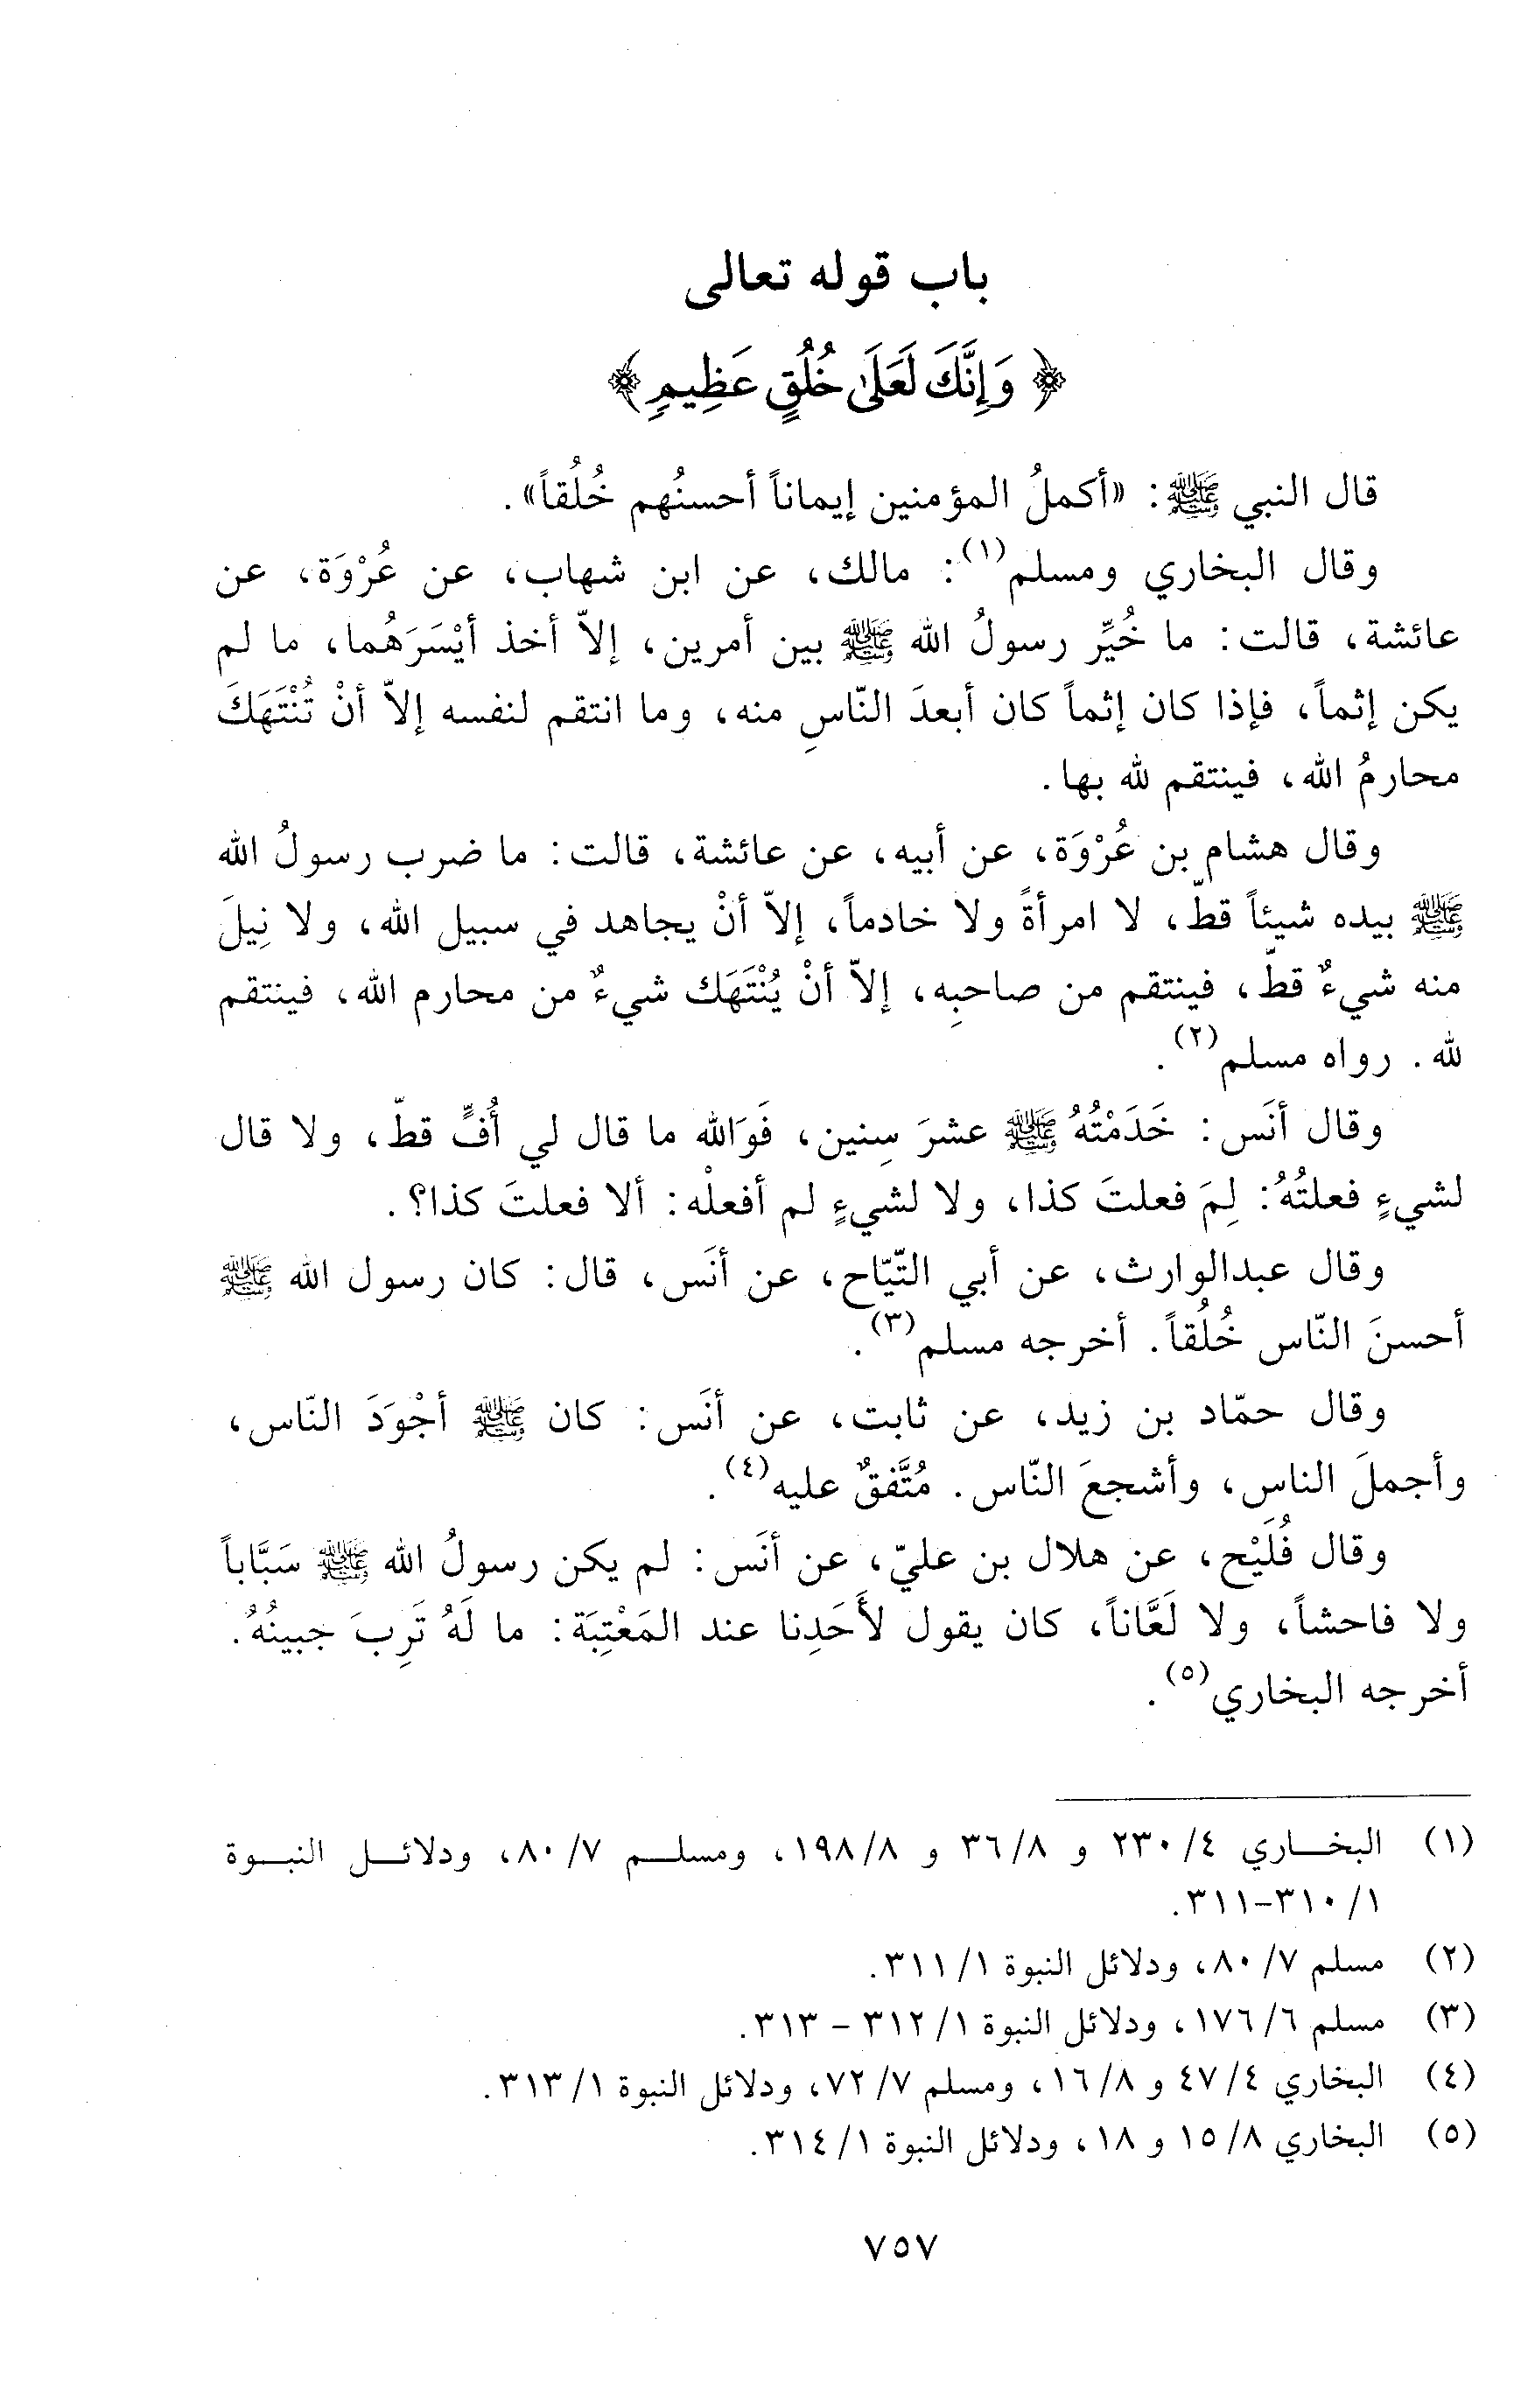 باب قوله تعالى
﴿ وَإِنَّكَ لَعَلَىٰ خُلُقٍ عَظِيمٍ ﴾
قال النبي ﷺ: «أكملُ المؤمنين إيماناً أحسنُهم خُلُقاً».
وقال البخاري ومسلم(١): مالك، عن ابن شهاب، عن عُرْوَة، عن
عائشة، قالت: ما خُيِّر رسولُ الله ﷺ بين أمرين، إلاّ أخذ أيْسَرَهُما، ما لم
يكن إثماً، فإذا كان إثماً كان أبعدَ النّاسِ منه، وما انتقم لنفسه إلاّ أنْ تُنْتَهَكَ
محارمُ الله، فينتقم لله بها.
وقال هشام بن عُرْوَة، عن أبيه، عن عائشة، قالت: ما ضرب رسولُ الله
ﷺ بيده شيئاً قطّ، لا امرأةً ولا خادماً، إلاّ أنْ يجاهد في سبيل الله، ولا نِيلَ
منه شيءٌ قطّ، فينتقم من صاحبِه، إلاّ أنْ يُنْتَهَك شيءٌ من محارم الله، فينتقم
لله. رواه مسلم(٢).
وقال أنَس: خَدَمْتُهُ ﷺ عشرَ سِنين، فَوَالله ما قال لي أُفٍّ قطّ، ولا قال
لشيءٍ فعلتُهُ: لِمَ فعلتَ كذا، ولا لشيءٍ لم أفعلْه: ألا فعلتَ كذا؟.
وقال عبدالوارث، عن أبي التّيّاح، عن أنَس، قال: كان رسول الله ﷺ
أحسنَ النّاس خُلُقاً. أخرجه مسلم(٣).
وقال حمّاد بن زيد، عن ثابت، عن أنَس: كان ﷺ أجْوَدَ النّاس،
وأجملَ الناس، وأشجعَ النّاس. مُتَّفقٌ عليه(٤).
وقال فُلَيْح، عن هلال بن عليّ، عن أنَس: لم يكن رسولُ الله ﷺ سَبَّاباً
ولا فاحشاً، ولا لَعَّاناً، كان يقول لأَحَدِنا عند المَعْتِبَة: ما لَهُ تَرِبَ جبينُهُ.
أخرجه البخاري(٥).
(١) البخاري ٤/ ٢٣٠ و ٨/ ٣٦ و ٨/ ١٩٨، ومسلم ٧/ ٨٠، ودلائل النبوة
١/ ٣١٠-٣١١.
(٢) مسلم ٧/ ٨٠، ودلائل النبوة ١/ ٣١١.
(٣) مسلم ٦/ ١٧٦، ودلائل النبوة ١/ ٣١٢ - ٣١٣.
(٤) البخاري ٤/ ٤٧ و ٨/ ١٦، ومسلم ٧/ ٧٢، ودلائل النبوة ١/ ٣١٣.
(٥) البخاري ٨/ ١٥ و ١٨، ودلائل النبوة ١/ ٣١٤.
٧٥٧